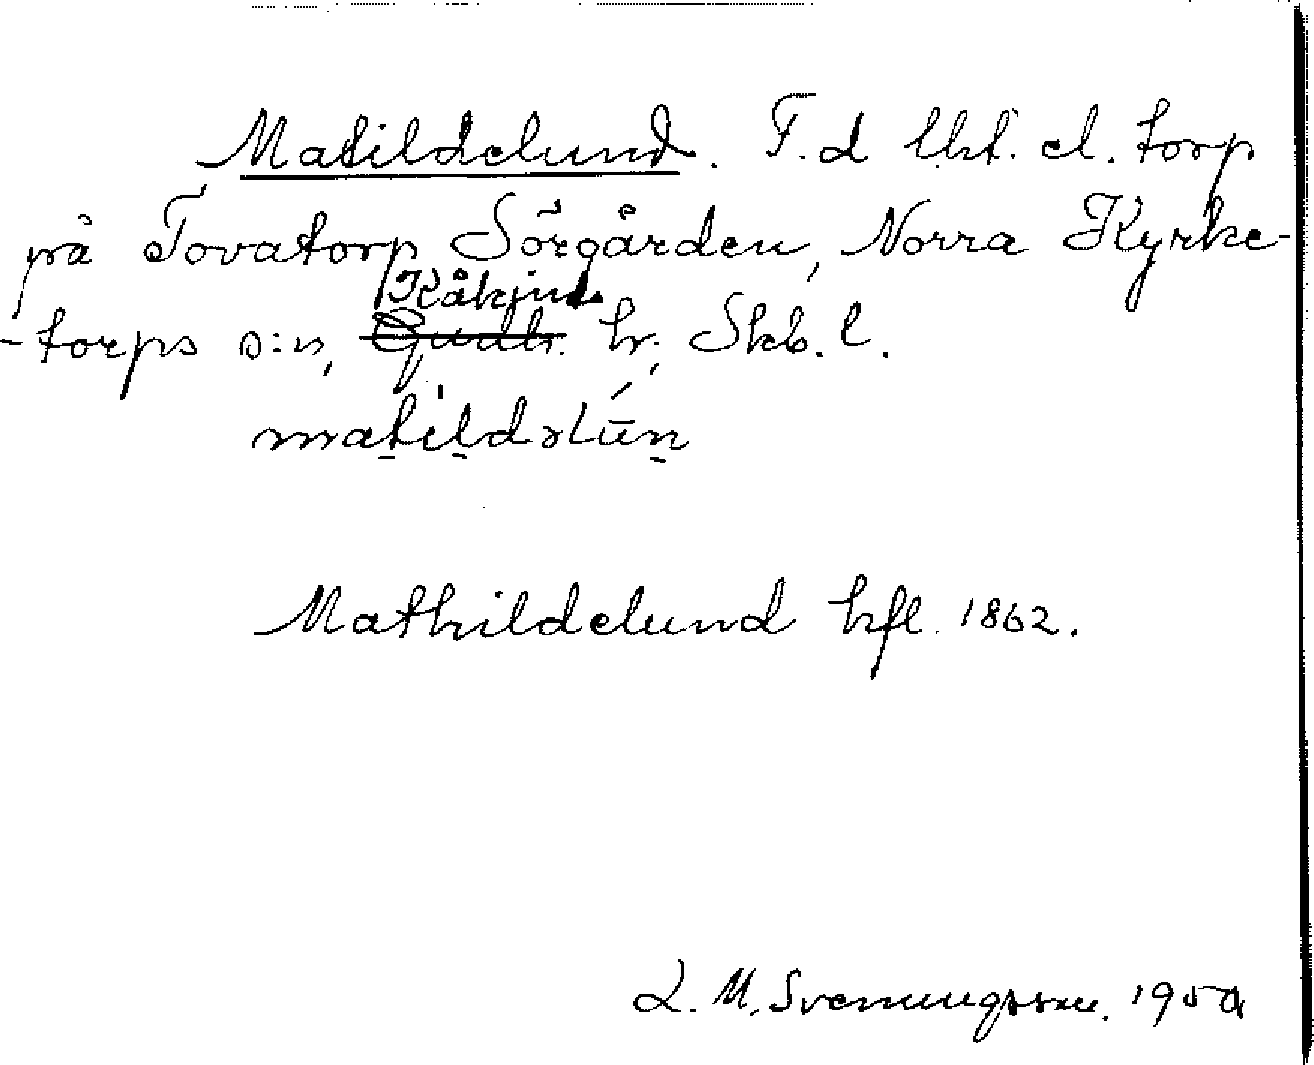 Matildelund. F.d lht. el. torp
på Tovatorp Sörgården, Norra Kyrke-
Kåkinds
-torps s:n, Gudh. hr, Skb. l.
matildəlūn
Mathildelund hfl. 1862.
L. M. Svenungsson. 1950